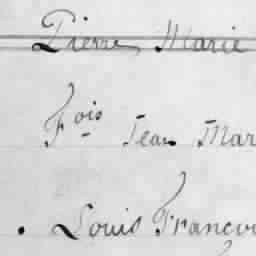 Pierre Marie
Fois Jean Mar
Louis Francoi